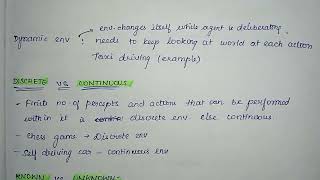 env. changes itself while agent is deliberating.
Dynamic env : needs to keep looking at world at each action
Taxi driving (example)
DISCRETE VS CONTINUOUS
- Finite no of percepts and actions that can be performed
within it is discrete env. else continuous
- chess game → Discrete env
- Self driving car - continuous env
KNOWN VS UNKNOWN